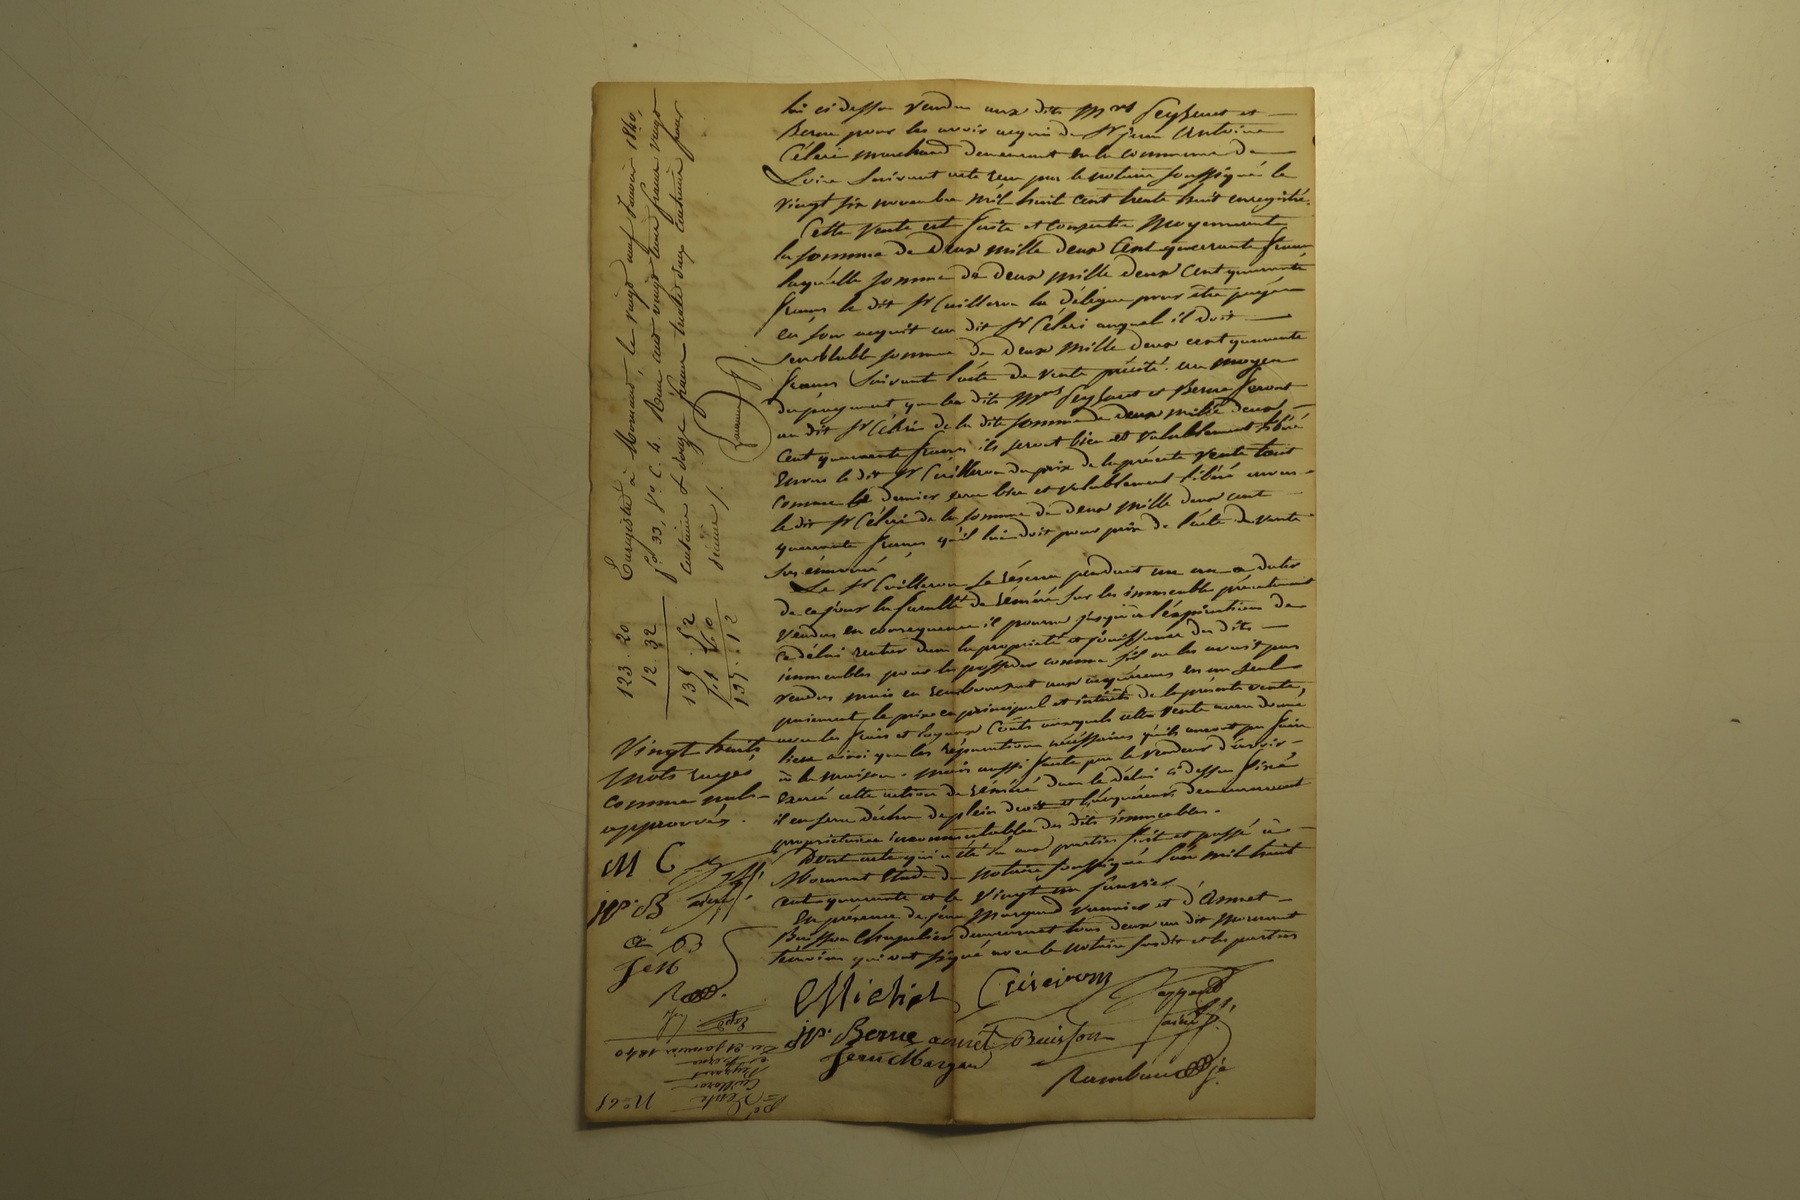 lui ci dessus vendus aux dits Mrs Seyssaut et
Berne pour les avoir acquis de Sr Jean Antoine
Céleri marchand demeurant en la commune de
Loire suivant acte reçu par le notaire soussigné le
vingt six novembre mil huit cent trente huit enregistré.
Cette vente est faite et consentie moyennant
la somme de deux mille deux cent quarante francs
laquelle somme de deux mille deux cent quarante
francs le dit Sr Cuilleron la délègue pour être payée
en son acquit au dit Sr Céleri auquel il doit
semblable somme de deux mille deux cent quarante
francs suivant l'acte de vente précité. au moyen
du payement que les dits Mrs et Berne feront
au dit Sr Céleri de la dite somme de deux mille deux
cent quarante francs ils seront bien et valablement libéré
envers le dit Sr Cuilleron du prix de la présente vente tout
comme ce dernier sera bien et valablement libéré envers
le dit Sr Céleri de la somme de deux mille deux cent
quarante francs qu'il lui doit pour prix de l'acte de vente
sus énoncé
Le Sr Cuilleron se réserve pendant un an a dater
de ce jour la faculté de réméré sur les immeubles présentement
vendus en consequence il pourra jusqu'à l'expiration de
ce délai rentrer dans la propriété et jouissance des dits
immeubles pour les posseder comme s'il ne les avait pas
vendus mais en remboursant aux acquéreurs en un seul
paiement le prix en principal et intérêts de la présente vente,
avec les frais et loyaux coûts auxquels cette vente aura donné
lieu ainsi que les réparations nécessaires qu'ils auront pu faire
à la maison. mais aussi faute par le vendeur d'avoir
exercé cette action de réméré dans le délai ci dessus fixé
il en sera déchu de plein droit et les acquéreurs demeureront
propriétaires incommutables des dits immeubles.
Dont acte qui a été lu aux parties fait et passé à
Mornant Etude du notaire soussigné l'an mil huit
cent quarante et le vingt un janvier
En présence de Jean Margand et d'Annet
Buisson chapelier demeurant tous deux au dit Mornant
témoins qui ont signé avec le notaire susdit et les parties
Michel
JP. Berne annet Buisson
Jean Margan
Rambaud
Enregistré à Mornant, le vingt neuf Janvier 1840,
fo 33, Vo C. 4. Reçu cent vingt trois francs vingt
centimes & douze francs trente deux centimes pour
décime
123. 20
12. 32
135. 52
197. 12
Vingt huit
mots rayés
comme nuls
approuvés.
M C
JP. B
a B
Je M
No 61
Vente
Cuilleron
et Berne
Du 21 janvier 1840